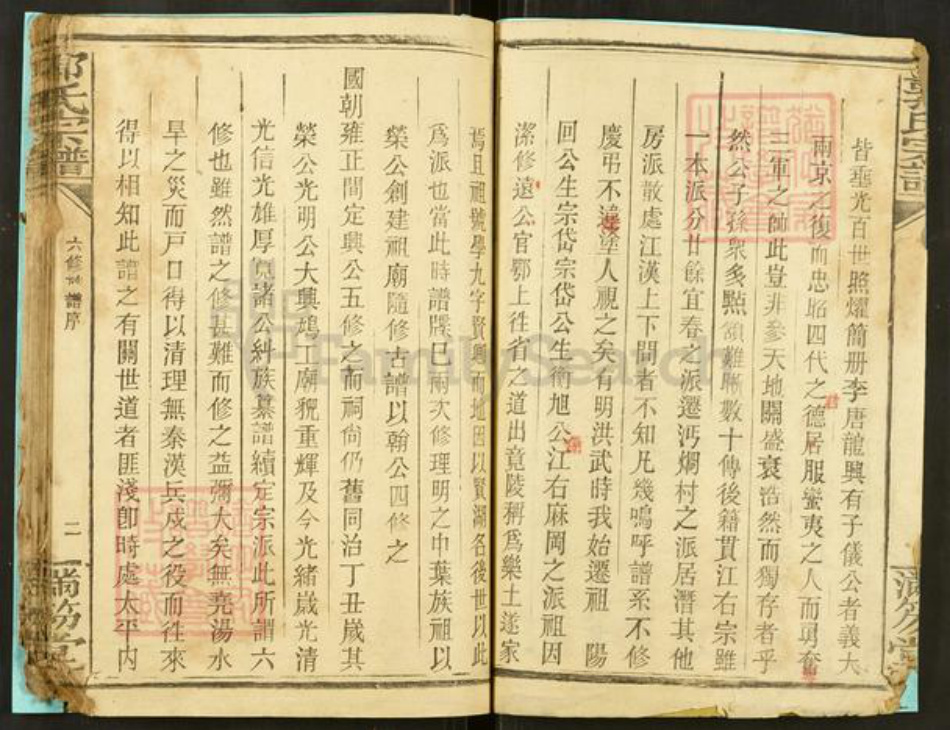 皆垂光百世照耀簡册李唐龍興有子儀公者義大
兩京之復而忠昭四代之德居服蠻夷之人而勇奮
三軍之帥此豈非參天地關盛衰浩然而獨存者乎
然公子孫衆多點頷難勝數十傳後籍貫江右宗雖
一本派分廿餘宜春之派遷沔焖村之派居潛其他
房派散處江漢上下間者不知凡幾嗚呼譜系不修
慶弔不 塗人視之矣有明洪武時我始遷祖 陽
回公生宗岱宗岱公生衡旭公江右麻岡之派祖因
潔修遠公官鄂上往省之道出竟陵稱為樂土遂家
焉且祖號學九字賢興而地因以賢湖名後世以此
為派也當此時譜牒已兩次修理明之中葉族祖以
榮公創建祖廟隨修古譜以翰公四修之
國朝雍正間定興公五修之而祠尚仍舊同治丁丑歲其
榮公光明公大興鳩工廟貌重輝及今光緒歲光清
光信光雄厚 諸公糾族纂譜續定宗派此所謂六
修也雖然譜之修甚難而修之益彌大矣無堯湯水
旱之災而戶口得以清理無秦漢兵戍之役而往來
得以相知此譜之有關世道者匪淺卽時處太平內
郭氏宗譜
六修 譜序
二
滿笏堂